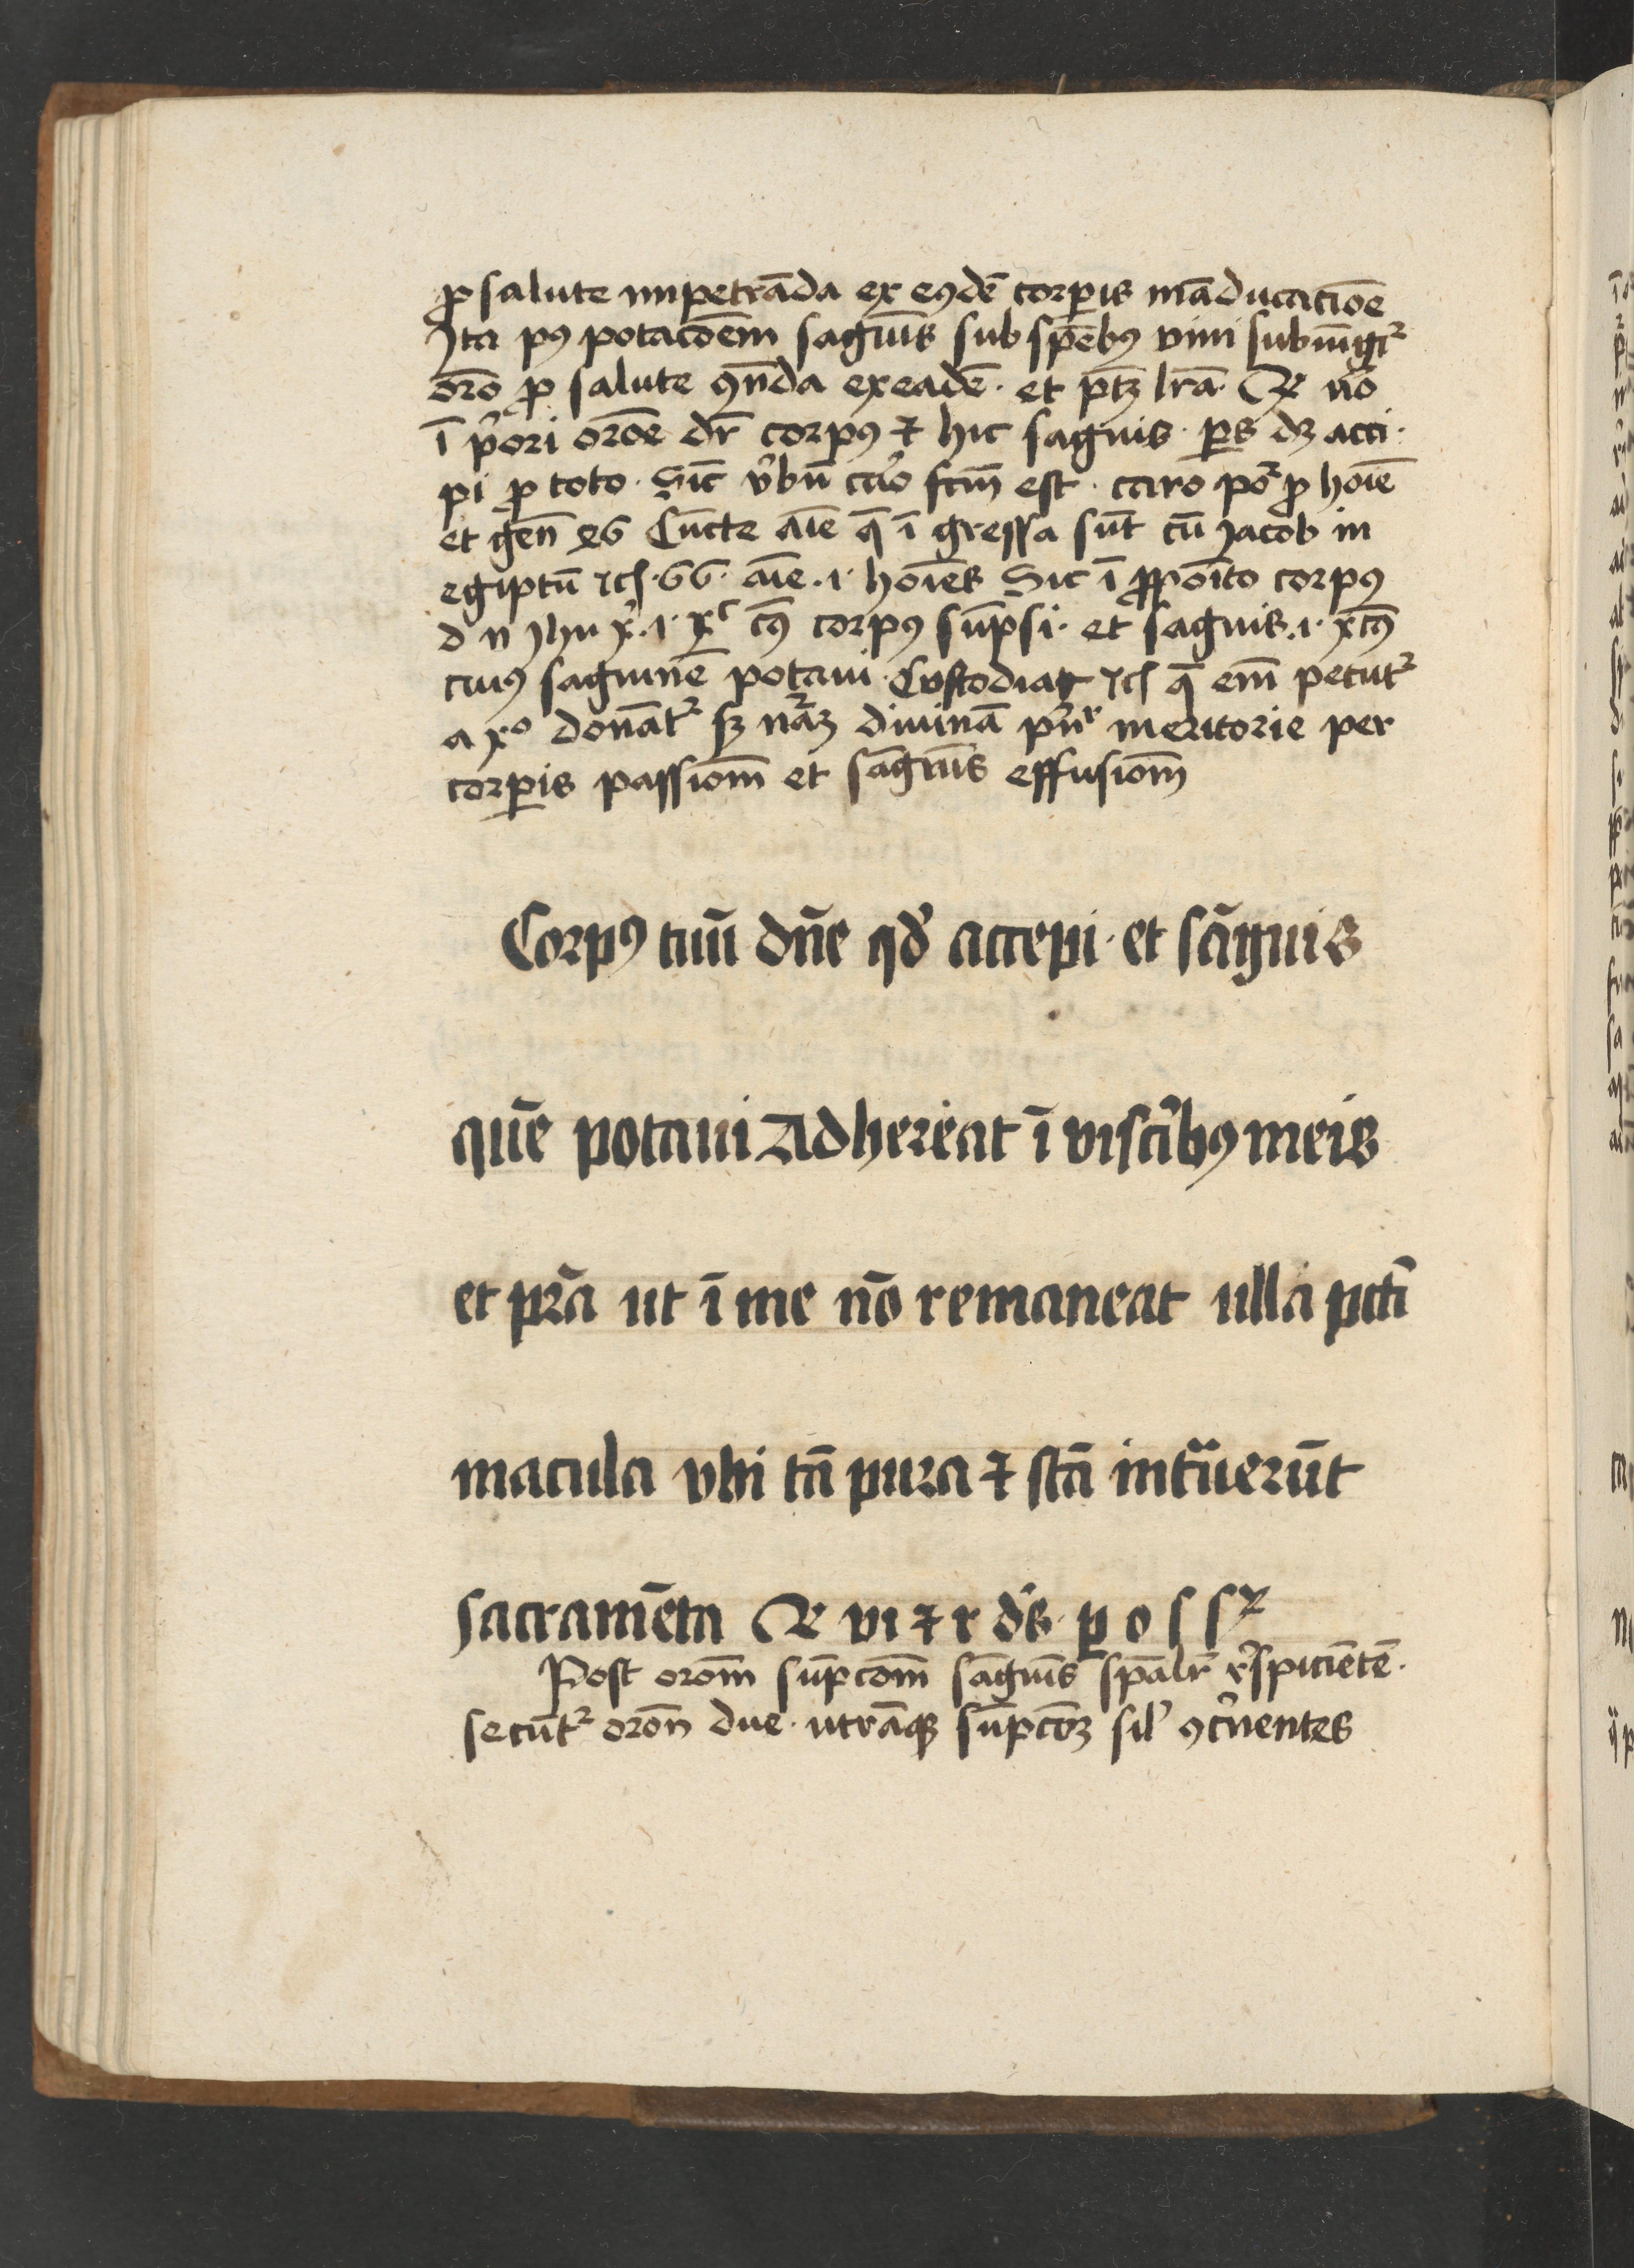 ꝓ salute impetrāda ex eꝰdē corꝑis māducatiōe
Ita pꝰ potacōem sāgu̅is sub sp̅ebꝰ vini subiu̅gitᷣ
or̅o ꝓ salute ꝯn̅da ex eadē · et ptꝫ lr̅a · Et nō
ī p̉ori or̅oe dr̅ corpꝰ ⁊ hic sāguis · ꝑs dꝫ acci·
pi ꝓ toto · Sic̅ v̉bū caro fcm̅ est · caro po̅ ꝓ ho̅ie
et gen̅ 46 Cu̅cte a̅ie q̅ ī gressa su̅t cū Jacob in
egiptū ⁊c · 66 · a̅ie · i · ho̅ies Sic ī ꝓpo̅ito corpꝰ
d n Jhu x̉ · i · xᶜ cꝰ corpꝰ su̅psi · et sāguis · i · xc̅ꝰ
cuiꝰ sāguinē potaui · Custodiat ⁊c q̅ em̅ petu̅tᷣ
a xᵒ donātᷣ ẜꝫ nāꝫ diuinā pn̅ʳ meritorie per
corꝑis passiom̅ et sāgui̅s effusiom̅
Corpꝰ tuū dn̅e qd̉ accepi · et sāguis
quē potaui Adhereat ī visc̉ibꝰ meis
et pr̅a ut ī me nō remaneat ulla pcti̅
macula vbi tā pura ⁊ sc̅a intrauerūt
sacramēta Et vi ⁊ r ds̉ · ꝑ o s sˣ
Post orom̅ su̅pcom̅ sāgui̅s sp̅alr̅ r̉spiciētē ·
secu̅tᷣ oron̅ due · utrāqꝫ su̅pcoꝫ sil̉ ꝯc̉nentes